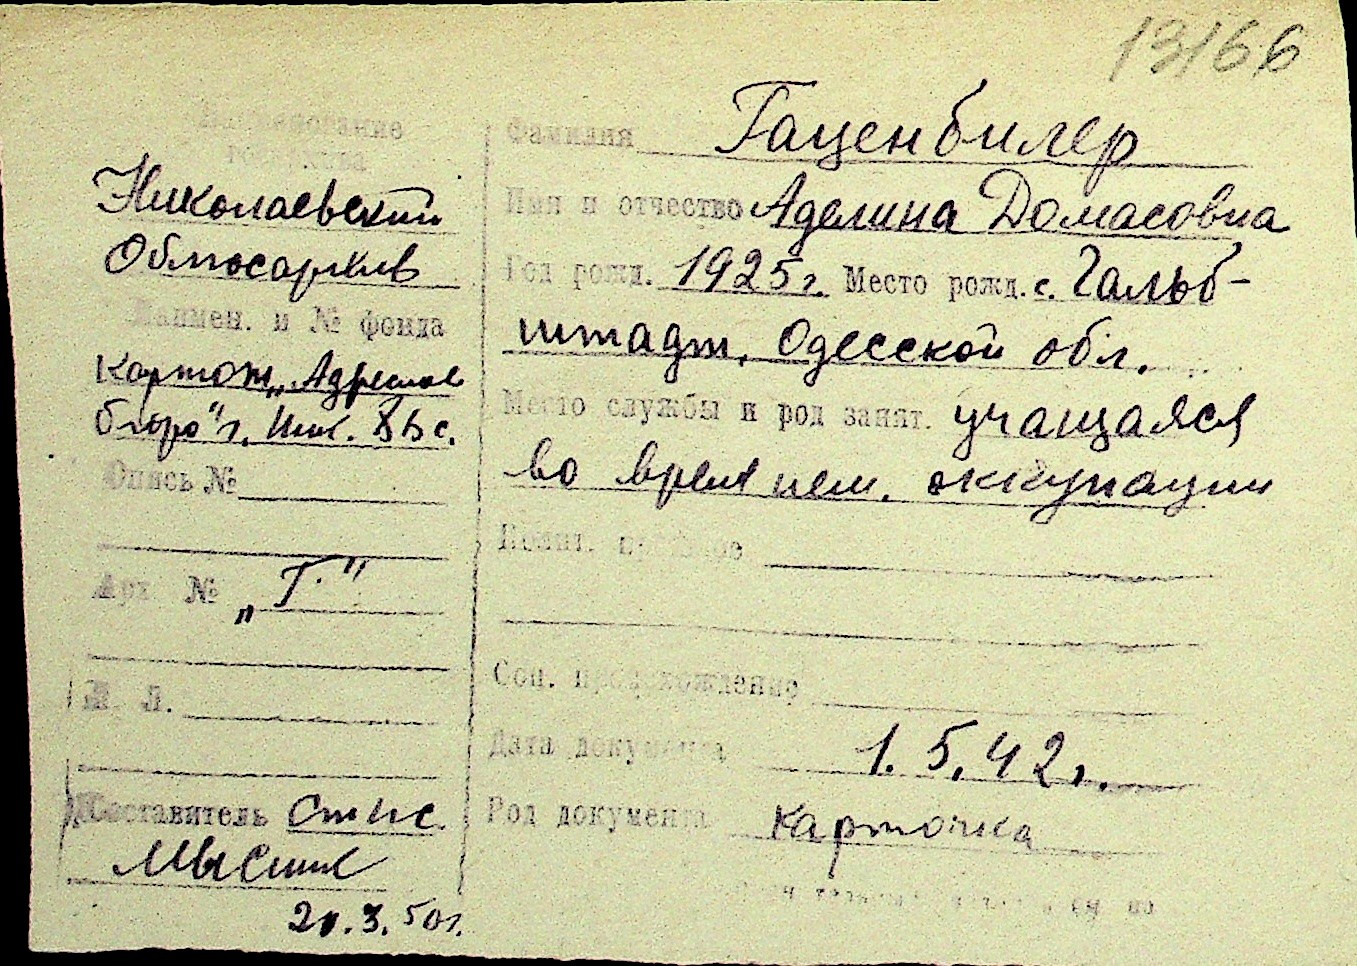 13166
Наименование
госархива
Николаевский
Облгосархив
Наимен. и № фонда
Картот. „Адресное
бюро" г. Ник.
Опись №
Арх. № „Г."
Л. Л.
Составитель
20.3.50г.
Фамилия Гаценбилер
Имя и отчество Аделина Домасовна
Год рожд. 1925 г. Место рожд. с. Гальб-
штадт, Одесской обл.
Место службы и род занят. учащаяся
во время нем. оккупации
Соц. происхождение
Дата документа 1.5.42 г.
Род документа карточка